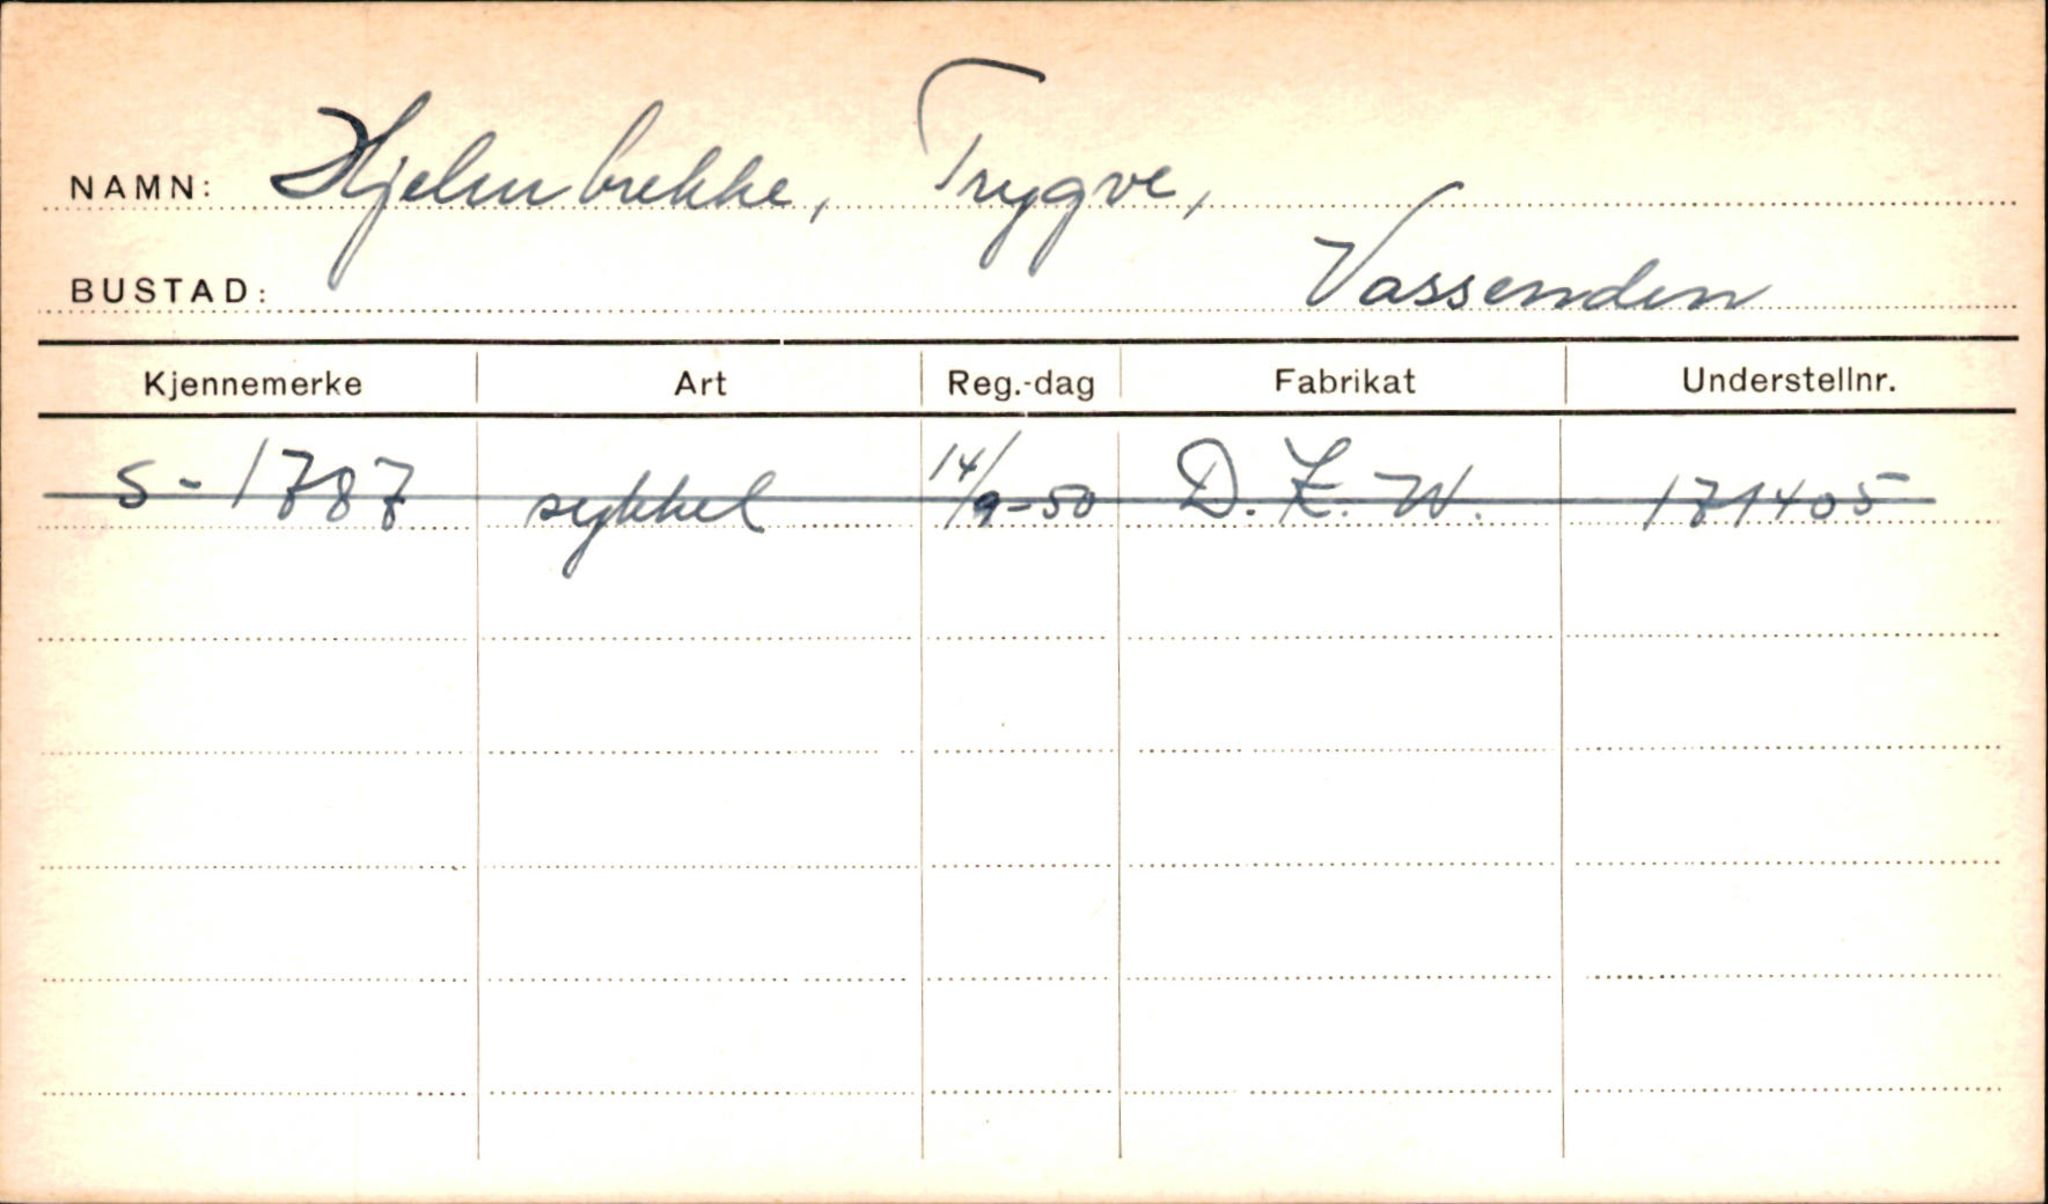 NAMN: Hjelmbrekke, Trygve,
BUSTAD: Vassenden
Kjennemerke Art Reg.-dag Fabrikat Understellnr.
S-1787 sykkel 14/9-50 D.K.W. 171405